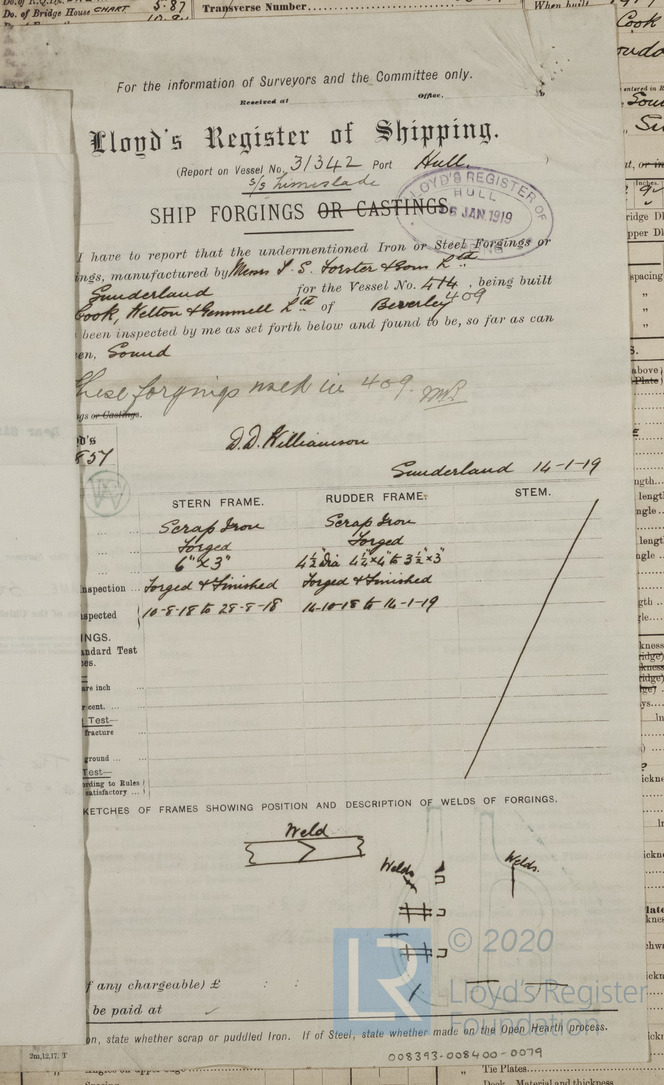 Do. of Bridge House CHART 5.87
Transverse Number
When built
Cook
For the information of Surveyors and the Committee only.
Received at Office,
Lloyd's Register of Shipping.
(Report on Vessel No. 31342 Port Hull. )
s/s Limeslade
LLOYD'S REGISTER OF
HULL
JAN. 1919
SHIP FORGINGS OR CASTINGS
I have to report that the undermentioned Iron or Steel Forgings or
ings, manufactured by Messrs T. S. Forster & Sons Ltd
Sunderland for the Vessel No. 414, being built
409
Cook, Welton & Gemmell Ltd of Beverley
been inspected by me as set forth below and found to be, so far as can
en, Sound
These forgings used in 409.
gs or Castings.
D.D. Williamson
857
Sunderland 14-1-19
STERN FRAME. RUDDER FRAME. STEM.
Scrap Iron Scrap Iron
Forged Forged
6" x 3" 4½" Dia 4½" x 4" to 3½" x 3"
nspection Forged & Finished Forged & Finished
spected 10-8-18 to 28-8-18 14-10-18 to 14-1-19
INGS.
andard Test
es.
are inch
r cent.
Test—
fracture
ground
Test—
ording to Rules
satisfactory
KETCHES OF FRAMES SHOWING POSITION AND DESCRIPTION OF WELDS OF FORGINGS.
Weld
Welds
Welds.
© 2020
LR
Lloyd's Register
Foundation
f any chargeable) £ : :
be paid at
on, state whether scrap or puddled Iron. If of Steel, state whether made on the Open Hearth process.
2m,12,17. T
008393-008400-0079
Tie Plates